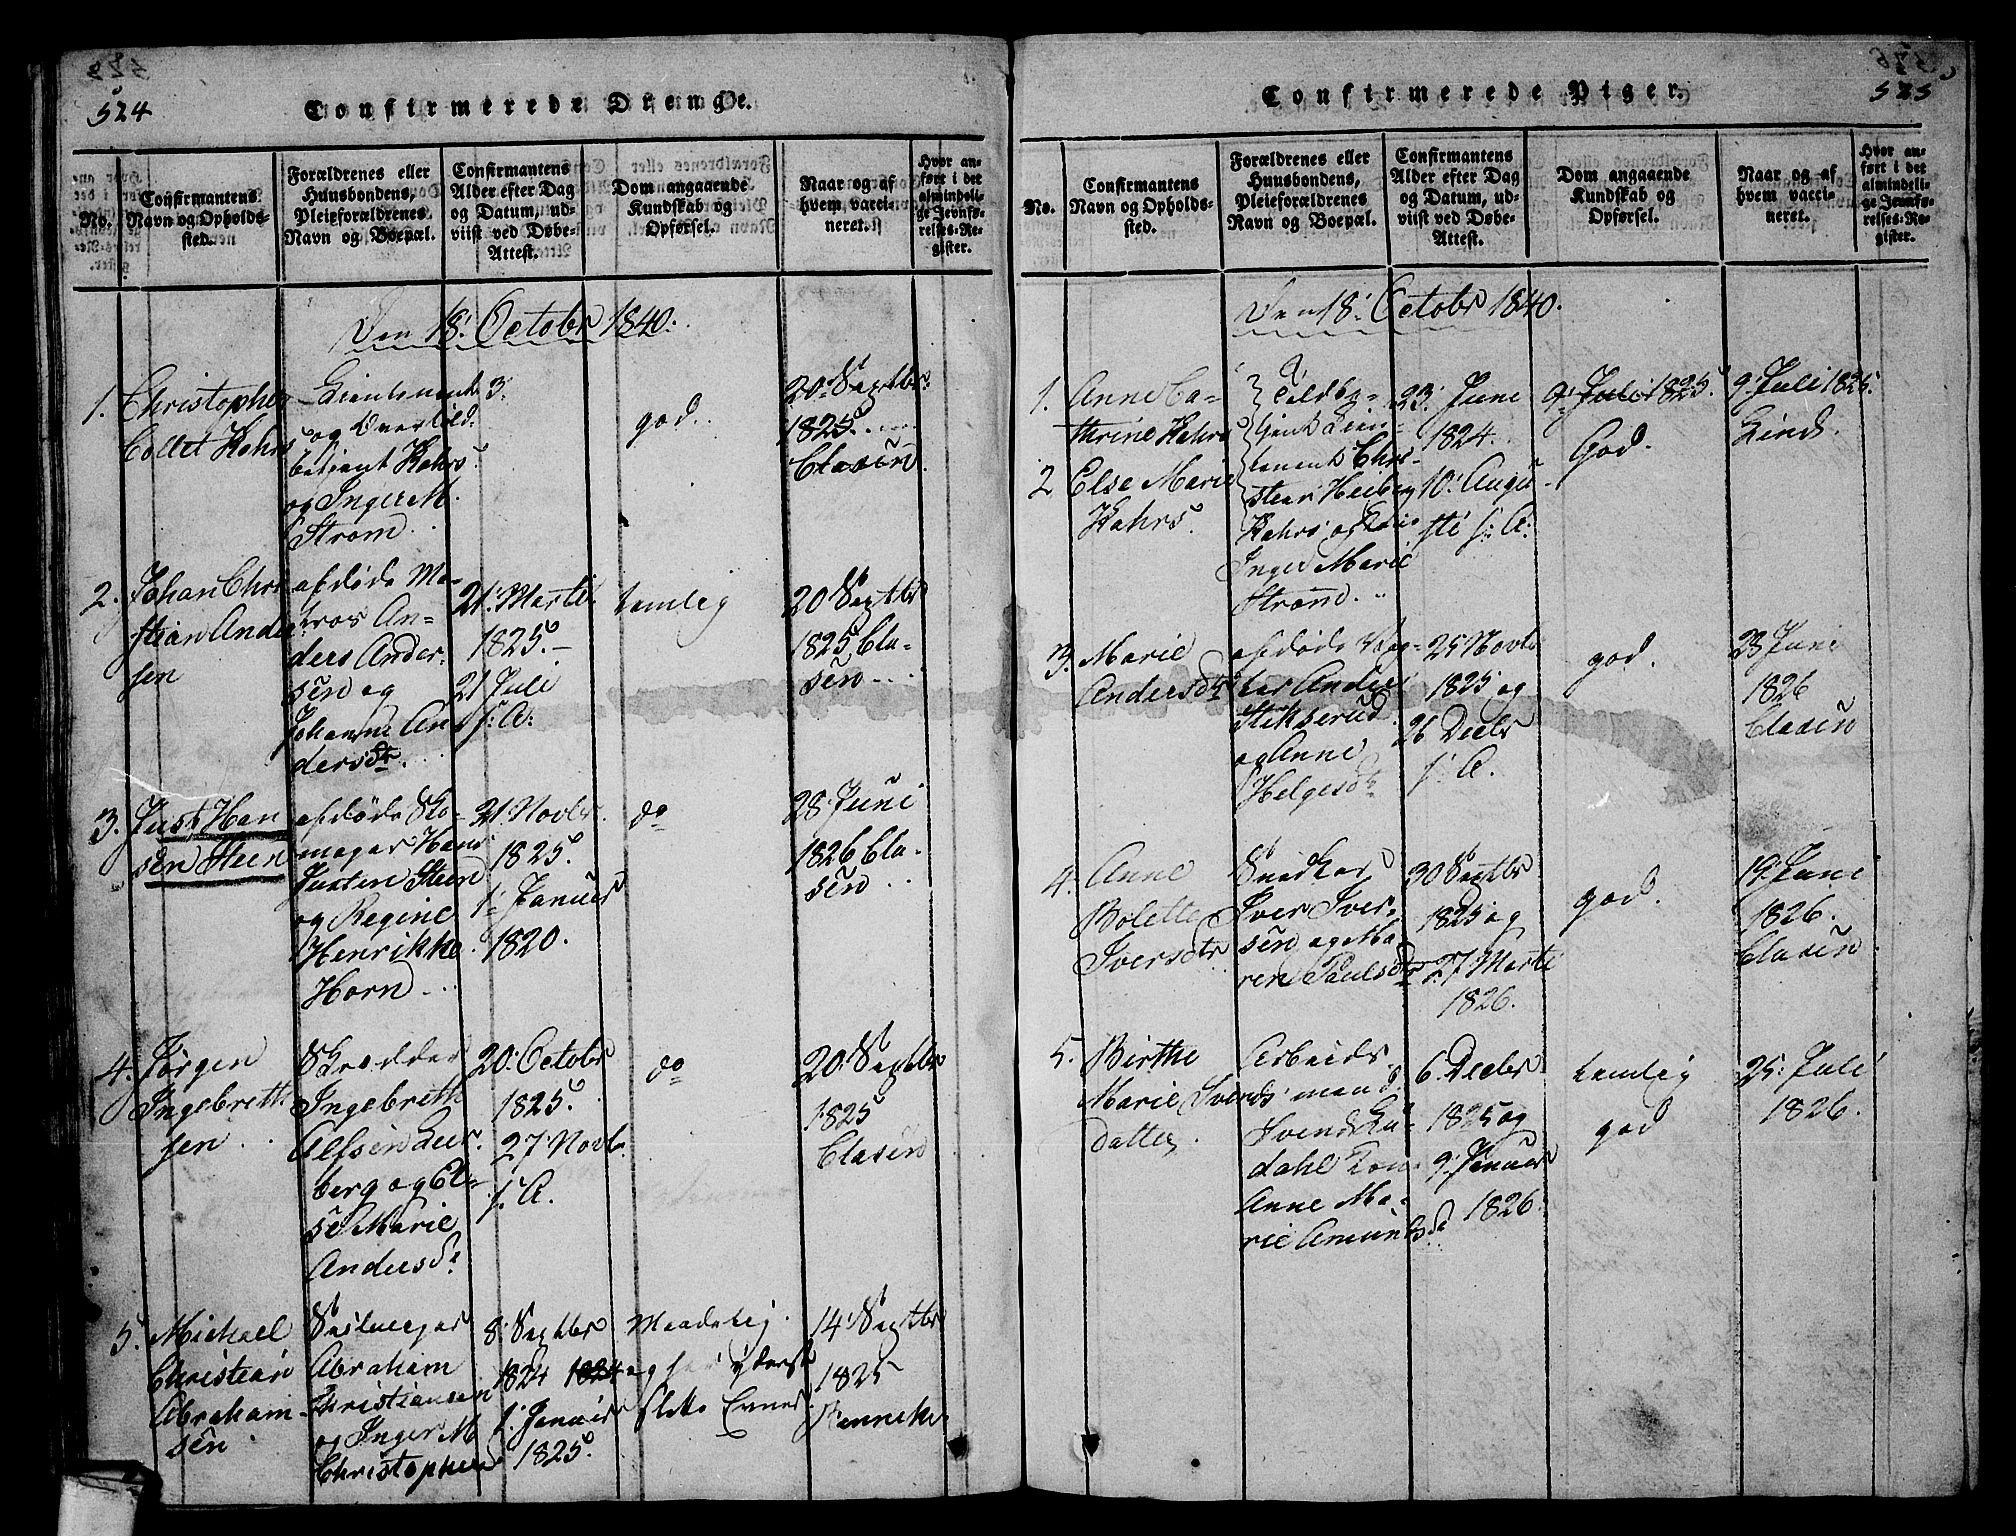 524
Confirmerede Drenge.
No.
Confirmantens
Navn og Opholds-
sted.
Forældrenes eller
Huusbondens,
Pleieforældrenes
Navn og Boepæl.
Confirmantens
Alder efter Dag
og Datum, ud-
viist ved Døbe-
Attest.
Dom angaaende
Kundskab og
Opførsel.
Naar og af
hvem vacci-
neret.
Hvor an-
ført i det
almindeli-
ge Jevnfø-
relses-Re-
gister.
Den 18' October 1840.
1. Christopher
Collet Kahrs
Lieutenant
og Overtold-
betjent Kahrs
og Inger M.
Strøm
3
god.
20 Septbr
1825
Clasen
2. Johan Chri
stian Ander
sen
afdøde Ma-
tros An-
ders Ander-
sen og
Johanne An
dersdtr.
21' Marti
1825.
21 Juli
s: A:
temlig
20 Septbr
1825 Cla-
sen
3. Just Han
sen Steen
afdøde Sko-
mager Hans
Justen Steen
og Regine
Henrikke
Horn
21' Novbr.
1825.
1' Januar
1820.
do
28 Juni
1826 Cla-
sen
4. Jørgen
Ingebreth
sen
Skrædder
Ingebreth
Alfsen Leer-
berg og El-
se Marie
Andersd.
20' October
1825.
27' Novb.
s. A.
do
20' Septbr
1825
Clasen
5. Michael
Christian
Abraham-
sen
Abraham
Christiansen
og Inger M
Christophers
8' Septbr
1824 1824
1' Januar
1825.
Maadelig
og har yderst
slette Evner
14' Septbr
1825
525
Confirmerede Piger.
No.
Confirmantens
Navn og Opholds-
sted.
Forældrenes eller
Huusbondens,
Pleieforældrenes
Navn og Boepæl.
Confirmantens
Alder efter Dag
og Datum, ud-
viist ved Døbe-
Attest.
Dom angaaende
Kundskab og
Opførsel.
Naar og af
hvem vacci-
neret.
Hvor an-
ført i det
almindeli-
ge Jevnfø-
relses-Re-
gister.
Den 18' October 1840.
1. Anne Ca-
thrine Kahrs
2 Else Marie
Kahrs.
Toldbe-
tjent Lieu-
tenant Chri-
stian Heiberg
Kahrs og
Inger Marie
Strøm.
23. Juni
1824.
10' Augu-
sti s: A:
9' Juli 1825
God.
9' Juli 1825.
Lind.
3. Marie
Andersdtr
afdøde
Anders
Stikserud
og Anne
Helgesdtr
25 Novbr
1825 og
26 Decbr
s. A.
god.
23 Juni
1826
Clasen
4. Anne
Bolette
Iversdtr
Snedker
Iver Iver-
sen og Ma-
ren Paulsdtr
30 Septbr
1825 og
27 Marti
1826.
god.
19' Juni
1826.
Clasen
5. Birthe
Marie Svends-
datter.
Arbeids
mand
Svend
dahl Kone
Anne Ma-
rie Amundsd.
6. Decbr
1825 og
9' Januar
1826.
temlig
god
25' Juli
1826.